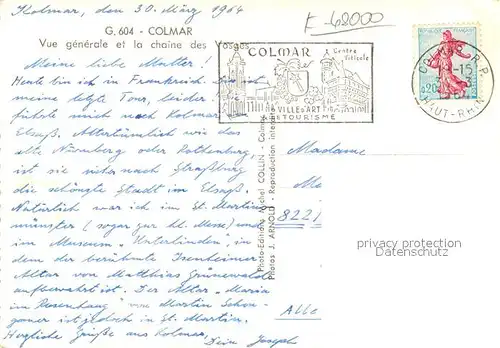 Kolmar, den 30. März 1964
F-68000
G. 604 - COLMAR
Vue générale et la chaine des Vosges
Meine liebe Mutter!
Heute bin ich in Frankreich. Das ist
meine letzte Tour, leider. Sie
führte mich nach Kolmar
Elsaß. Altertümlich wie das
alte Nürnberg oder Rothenburg,
ist sie nächst nach Straßburg
die schönste Stadt im Elsaß.
Natürlich war ich im St. Martins
münster (sogar zur hl. Messe) und
im Museum "Unterlinden", in
dem der berühmte Isenheimer
Altar von Matthias Grünewald
aufbewahrt ist. Der Altar "Maria
im Rosenhaag" von Martin Schon-
gauer ist jedoch in St. Martin.
Herzliche Grüße aus Kolmar,
Dein Joseph
COLMAR
Centre
Viticole
VILLE D'ART
TOURISME
COLMAR R.P.
HAUT-RHIN
0,20
Photo-Editions Michel COLLIN - Colmar
Photos J. ARNOLD - Reproduction interdite
Madame
822
Alle
privacy protection
DASMARO.COM